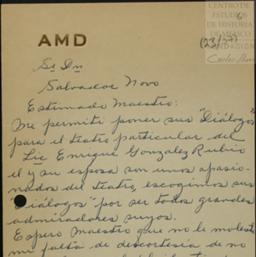 CENTRO
DE ESTUDIOS
DE HISTORIA
DE MÉXICO
FUNDACIÓN
Carlos Slim
AMD
Sr Dn
Salvador Novo
Estimado Maestro:
Me permiti poner sus "Diálogos"
para el teatro particular del
Lic Enrique Gonzalez Rubio
el y su esposa son unos apasio-
nados del teatro, escogimos sus
Diálogos" por ser todos grandes
admiradores suyos.
Espero Maestro que no le moleste
mi falta de descortesia de no